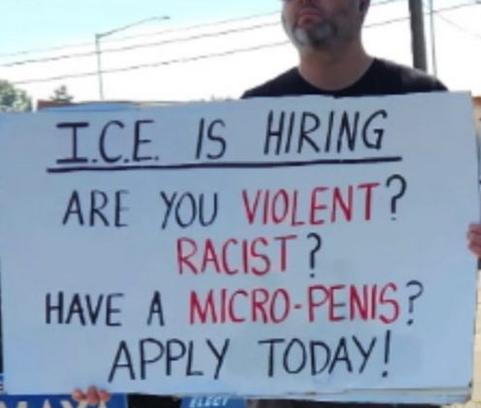 I.C.E. IS HIRING
ARE YOU VIOLENT?
RACIST?
HAVE A MICRO-PENIS?
APPLY TODAY!
ELECT